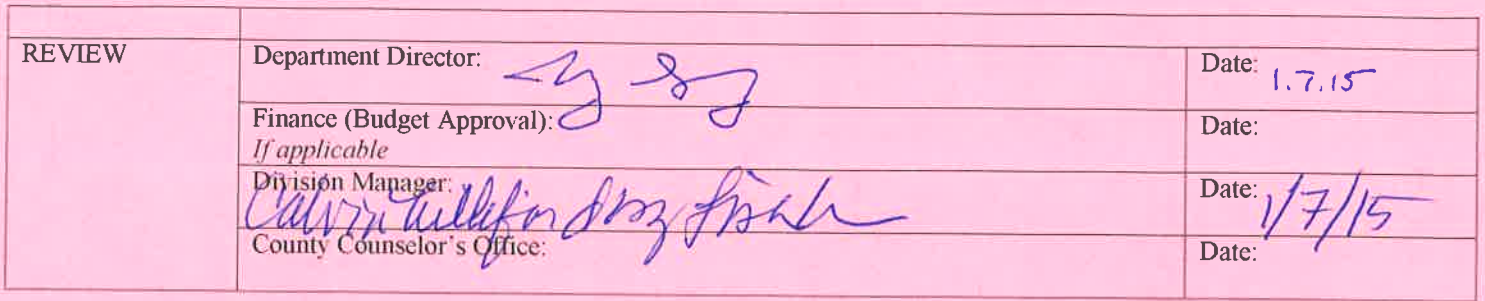 REVIEW
Department Director:
Date: 1.7.15
Finance (Budget Approval):
If applicable
Date:
Division Manager:
Calvin for
Date: 1/7/15
County Counselor's Office:
Date: